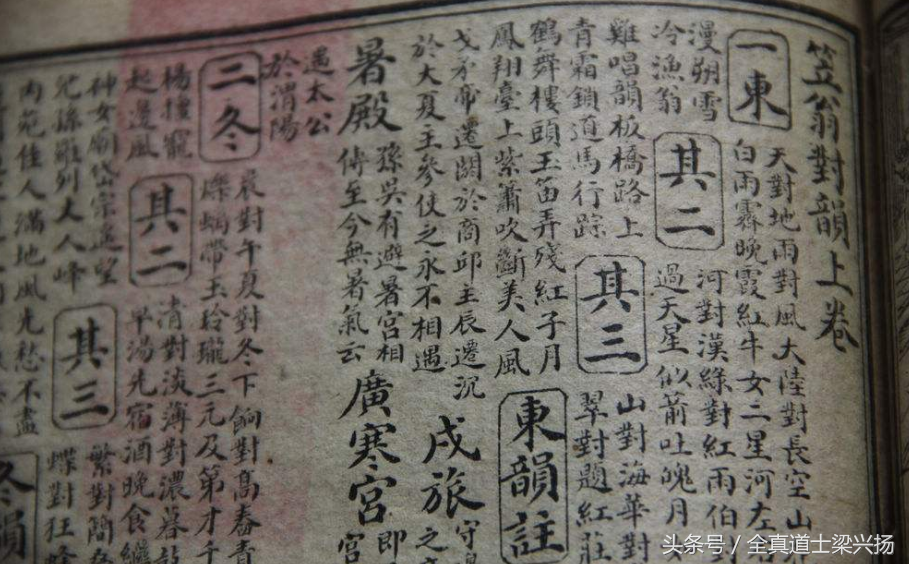 笠翁對韻上卷
一東
天對地雨對風大陸對長空山
白雨霽晚霞紅牛女二星河左
漫朔雪
冷漁翁
其二
河對漢綠對紅雨伯對
過天星似箭吐魄月
雞唱韻板橋路上
青霜鎖道馬行踪
其三
山對海華對
翠對題紅莊
鶴舞樓頭玉笛弄殘紅子月
鳳翔臺上紫簫吹斷美人風
東韻註
戈矛帝遷閼於商邱主辰遷沉
於大夏主參使之永不相遇
戌旅
守
之
暑殿
孫吳有避暑宮相
傳至今無暑氣云
廣寒宮
即
宮
遇太公
於渭陽
二冬
晨對午夏對冬下餉對高舂青
帶玉玲瓏三元及第才千
楊
起邊風
其二
清對淡薄對濃暮鼓
早湯先宿酒晚食繼
神女廟岱宗遙望
兒孫雖列丈人峰
其三
繁對簡
蝶對狂蜂
內苑佳人滿地風光愁不盡
冬韻
头条号 / 全真道士梁兴扬